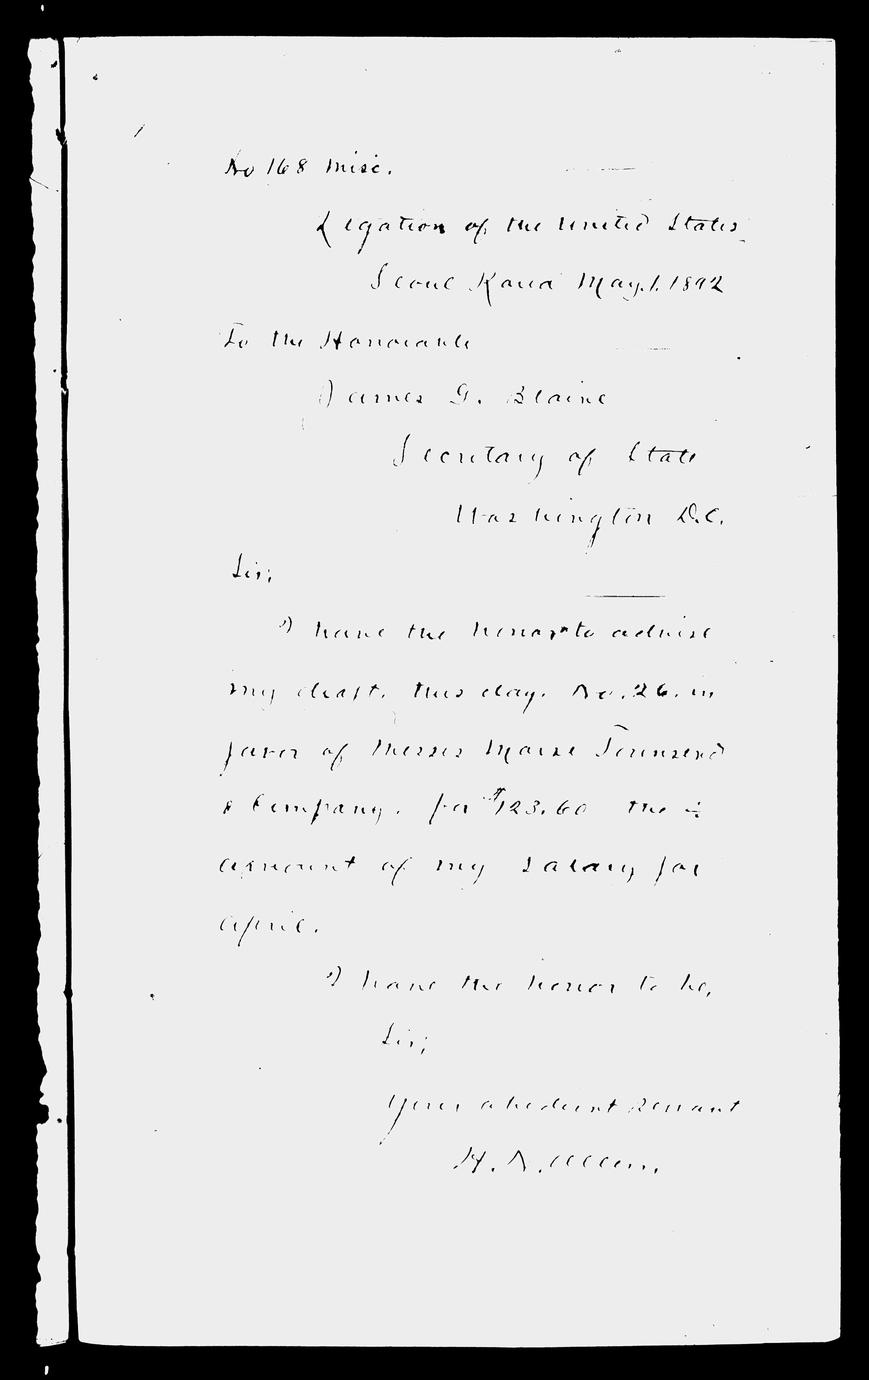 No 168 Misc.
Legation of the United States
Seoul Korea May. 1. 1892
To the Honorable
James G. Blaine
Secretary of State
Washington D.C.
Sir;
I have the honor to advise
my draft, this day, No. 26. in
favor of Messrs Morse Townsend
& Company. for $123.60 the
amount of my salary for
April.
I have the honor to be,
Sir;
Your obedient servant
H. N. Allen.